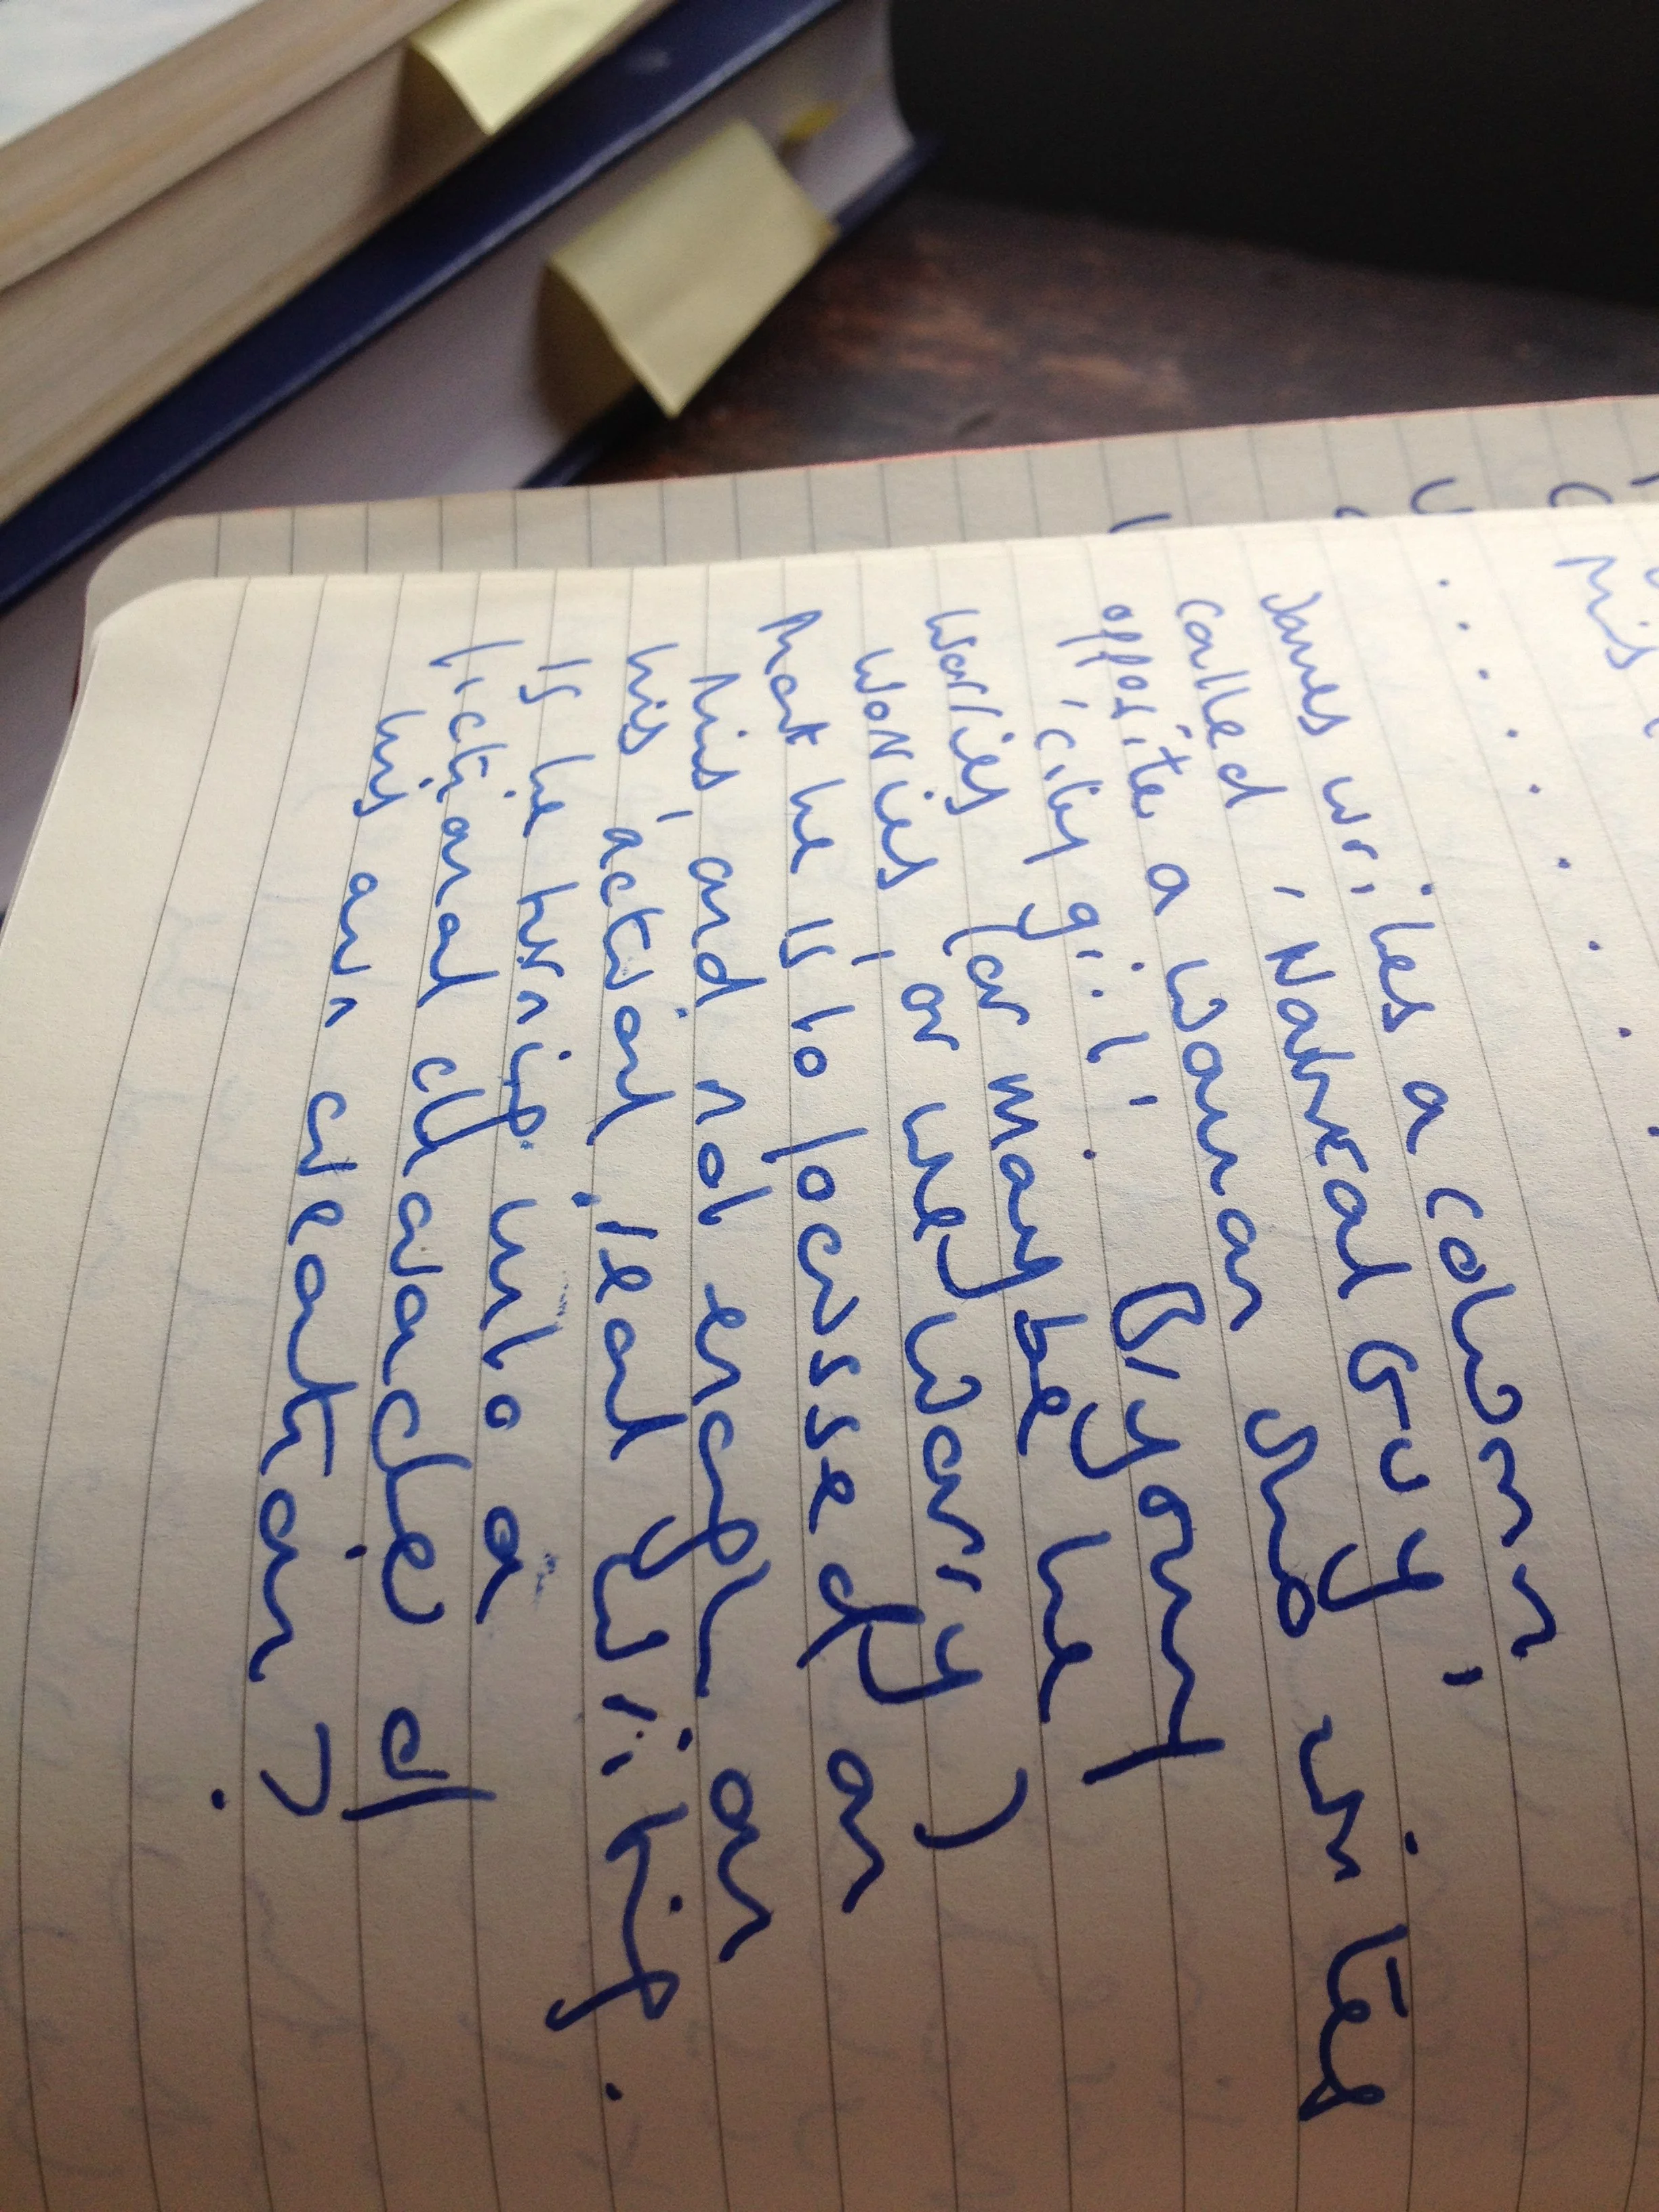 his
James writes a column
called 'Natural Guy',
opposite a woman who writes
'city girl'. Bryant
worries (or maybe he
worries, or they worry)
that he is to focussed on
this, and not enough on
his 'actual, real writing.
Is he turning into a
fictional character of
his own creation?